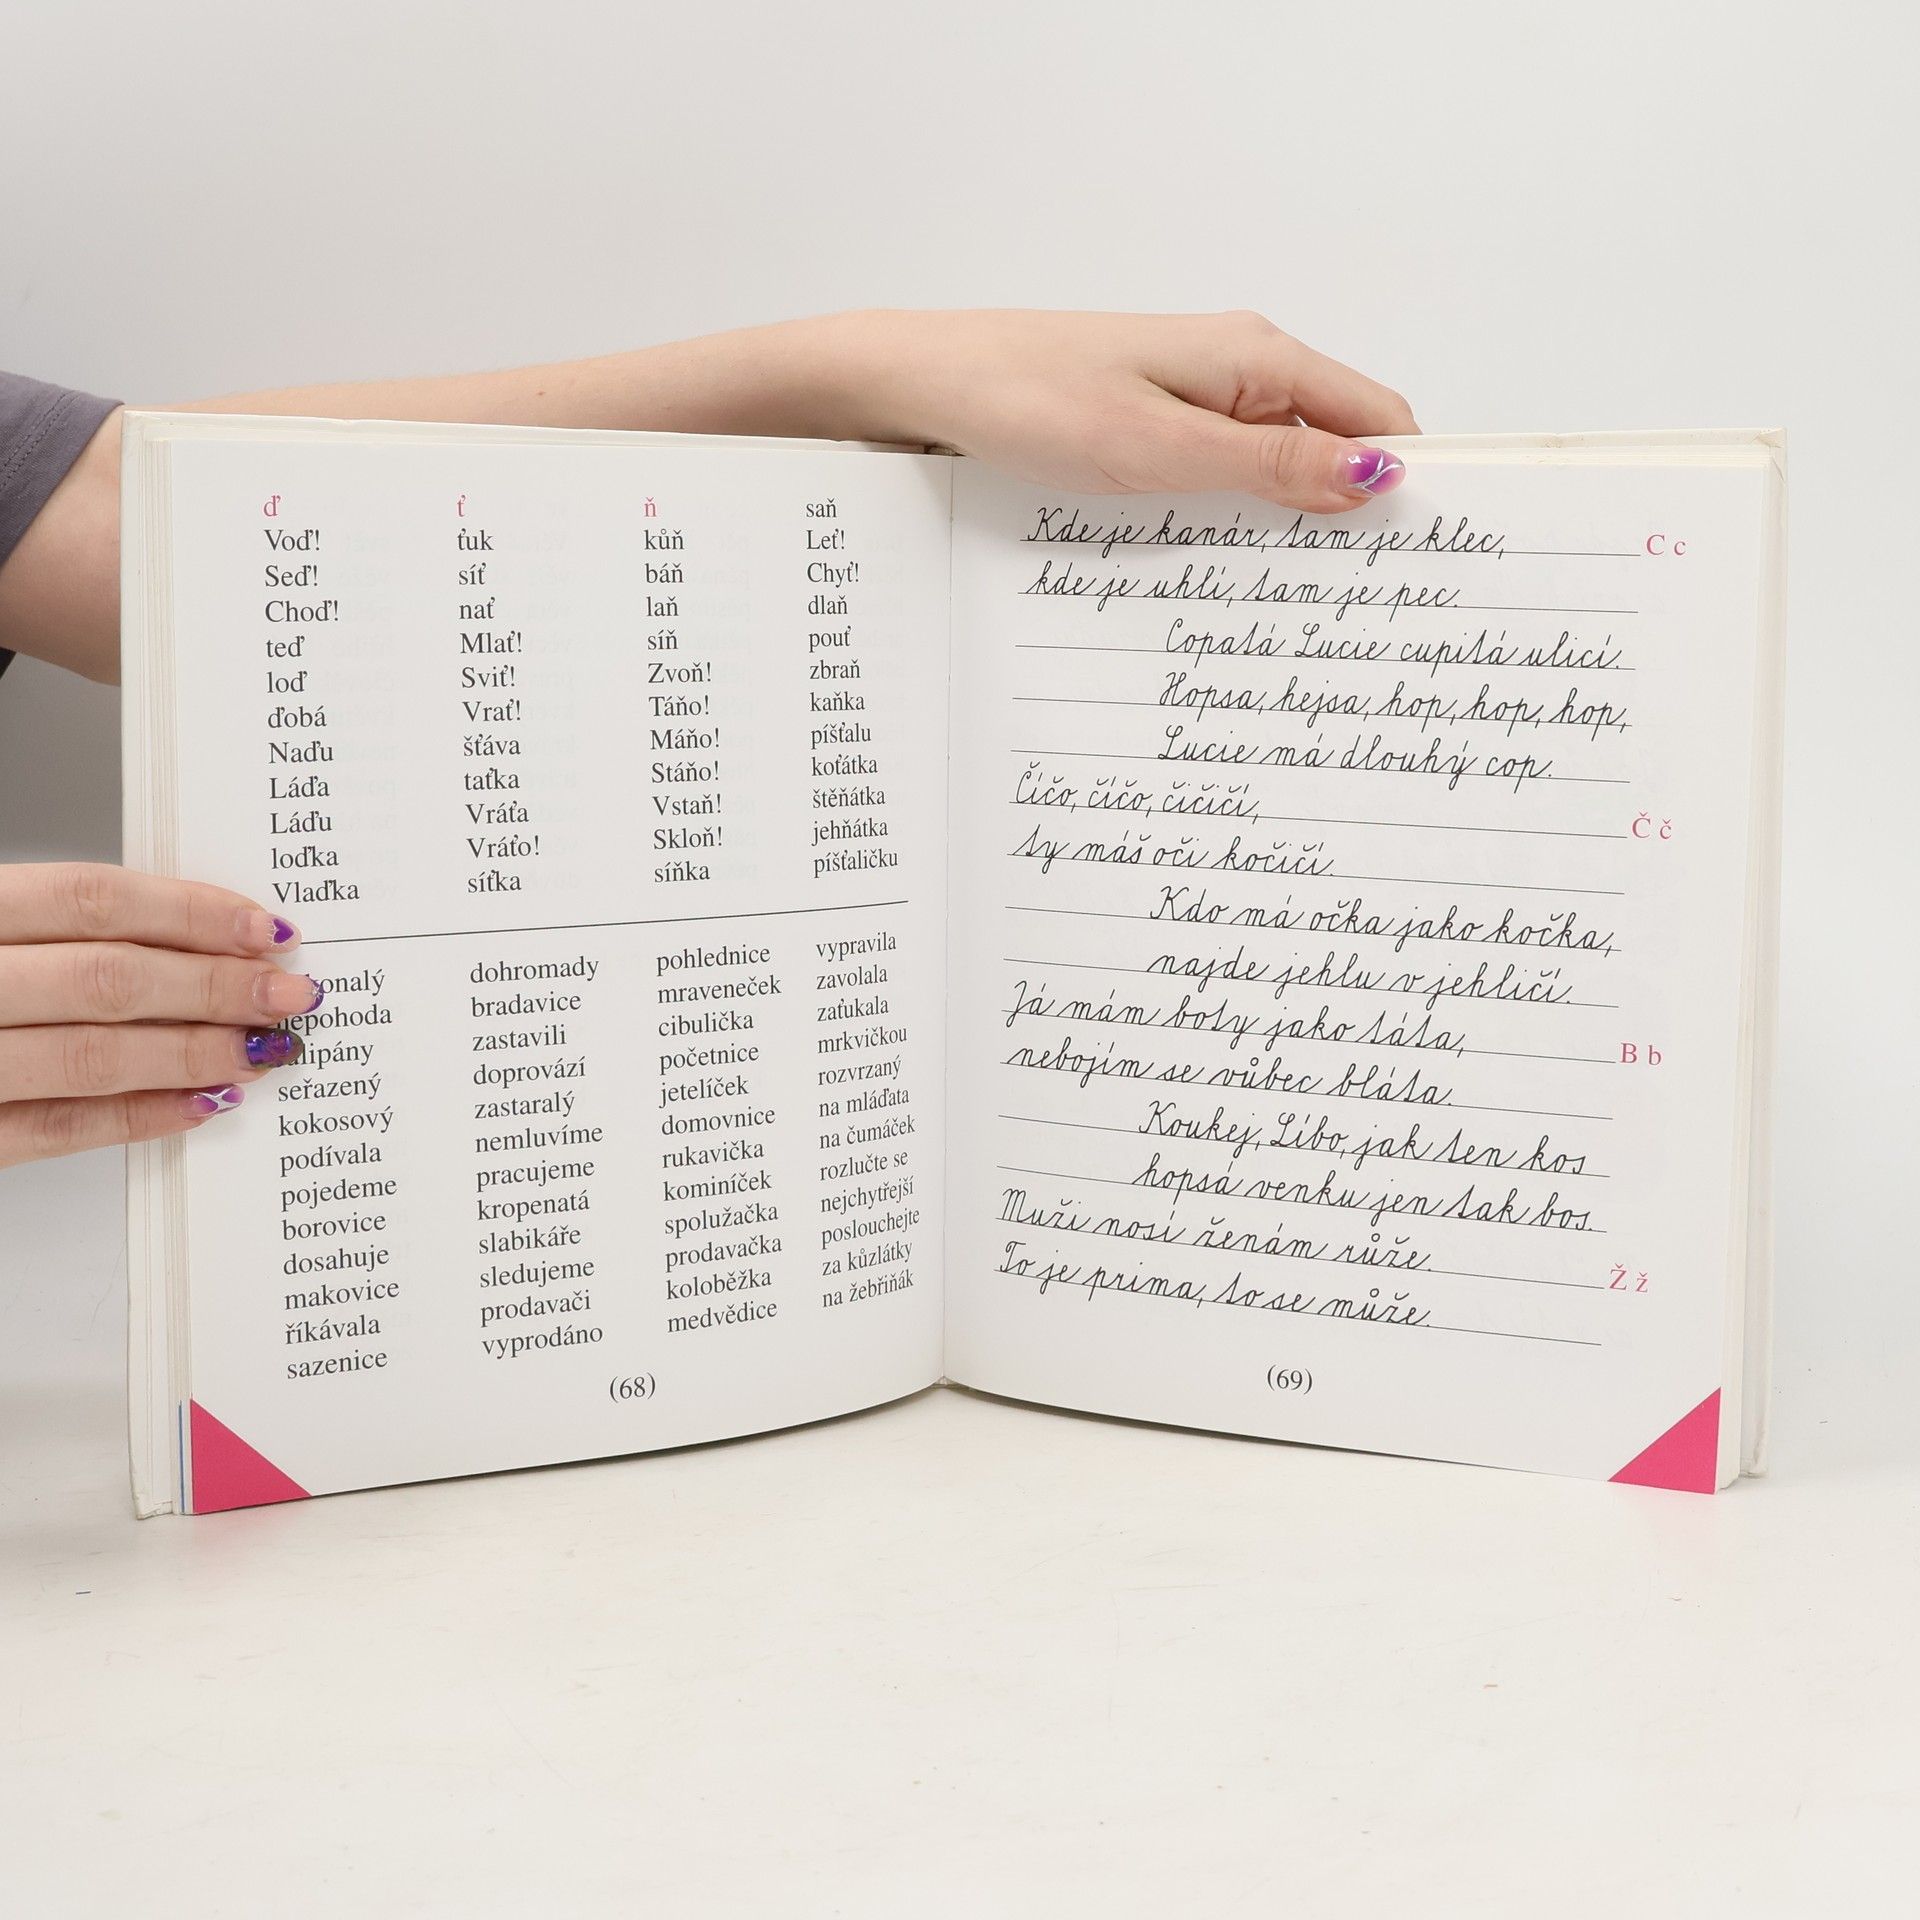 ď ť ň saň
Voď! ťuk kůň Leť!
Seď! síť báň Chyť!
Choď! nať laň dlaň
teď Mlať! síň pouť
loď Sviť! Zvoň! zbraň
ďobá Vrať! Táňo! kaňka
Naďu šťáva Máňo! píšťalu
Láďa taťka Stáňo! koťátka
Láďu Vráťa Vstaň! štěňátka
loďka Vráťo! Skloň! jehňátka
Vlaďka síťka síňka píšťaličku
dohromady pohlednice vypravila
nepohoda bradavice mraveneček zavolala
zastavili cibulička zaťukala
seřazený doprovází početnice mrkvičkou
kokosový zastaralý jetelíček rozvrzaný
podívala nemluvíme domovnice na mláďata
pojedeme pracujeme rukavička na čumáček
borovice kropenatá kominíček rozlučte se
dosahuje slabikáře spolužačka nejchytřejší
makovice sledujeme prodavačka poslouchejte
říkávala prodavači koloběžka za kůzlátky
sazenice vyprodáno medvědice na žebřiňák
(68)
Kde je kanár, tam je klec, C c
kde je uhlí, tam je pec.
Copatá Lucie cupitá ulicí.
Hopsa, hejsa, hop, hop, hop,
Lucie má dlouhý cop.
Číčo, číčo, čičičí, Č č
ty máš oči kočičí.
Kdo má očka jako kočka,
najde jehlu v jehličí.
Já mám boty jako táta, B b
nebojím se vůbec bláta.
Koukej, Líbo, jak ten kos
hopsá venku jen tak bos.
Muži nosí ženám růže. Ž ž
To je prima, to se může.
(69)